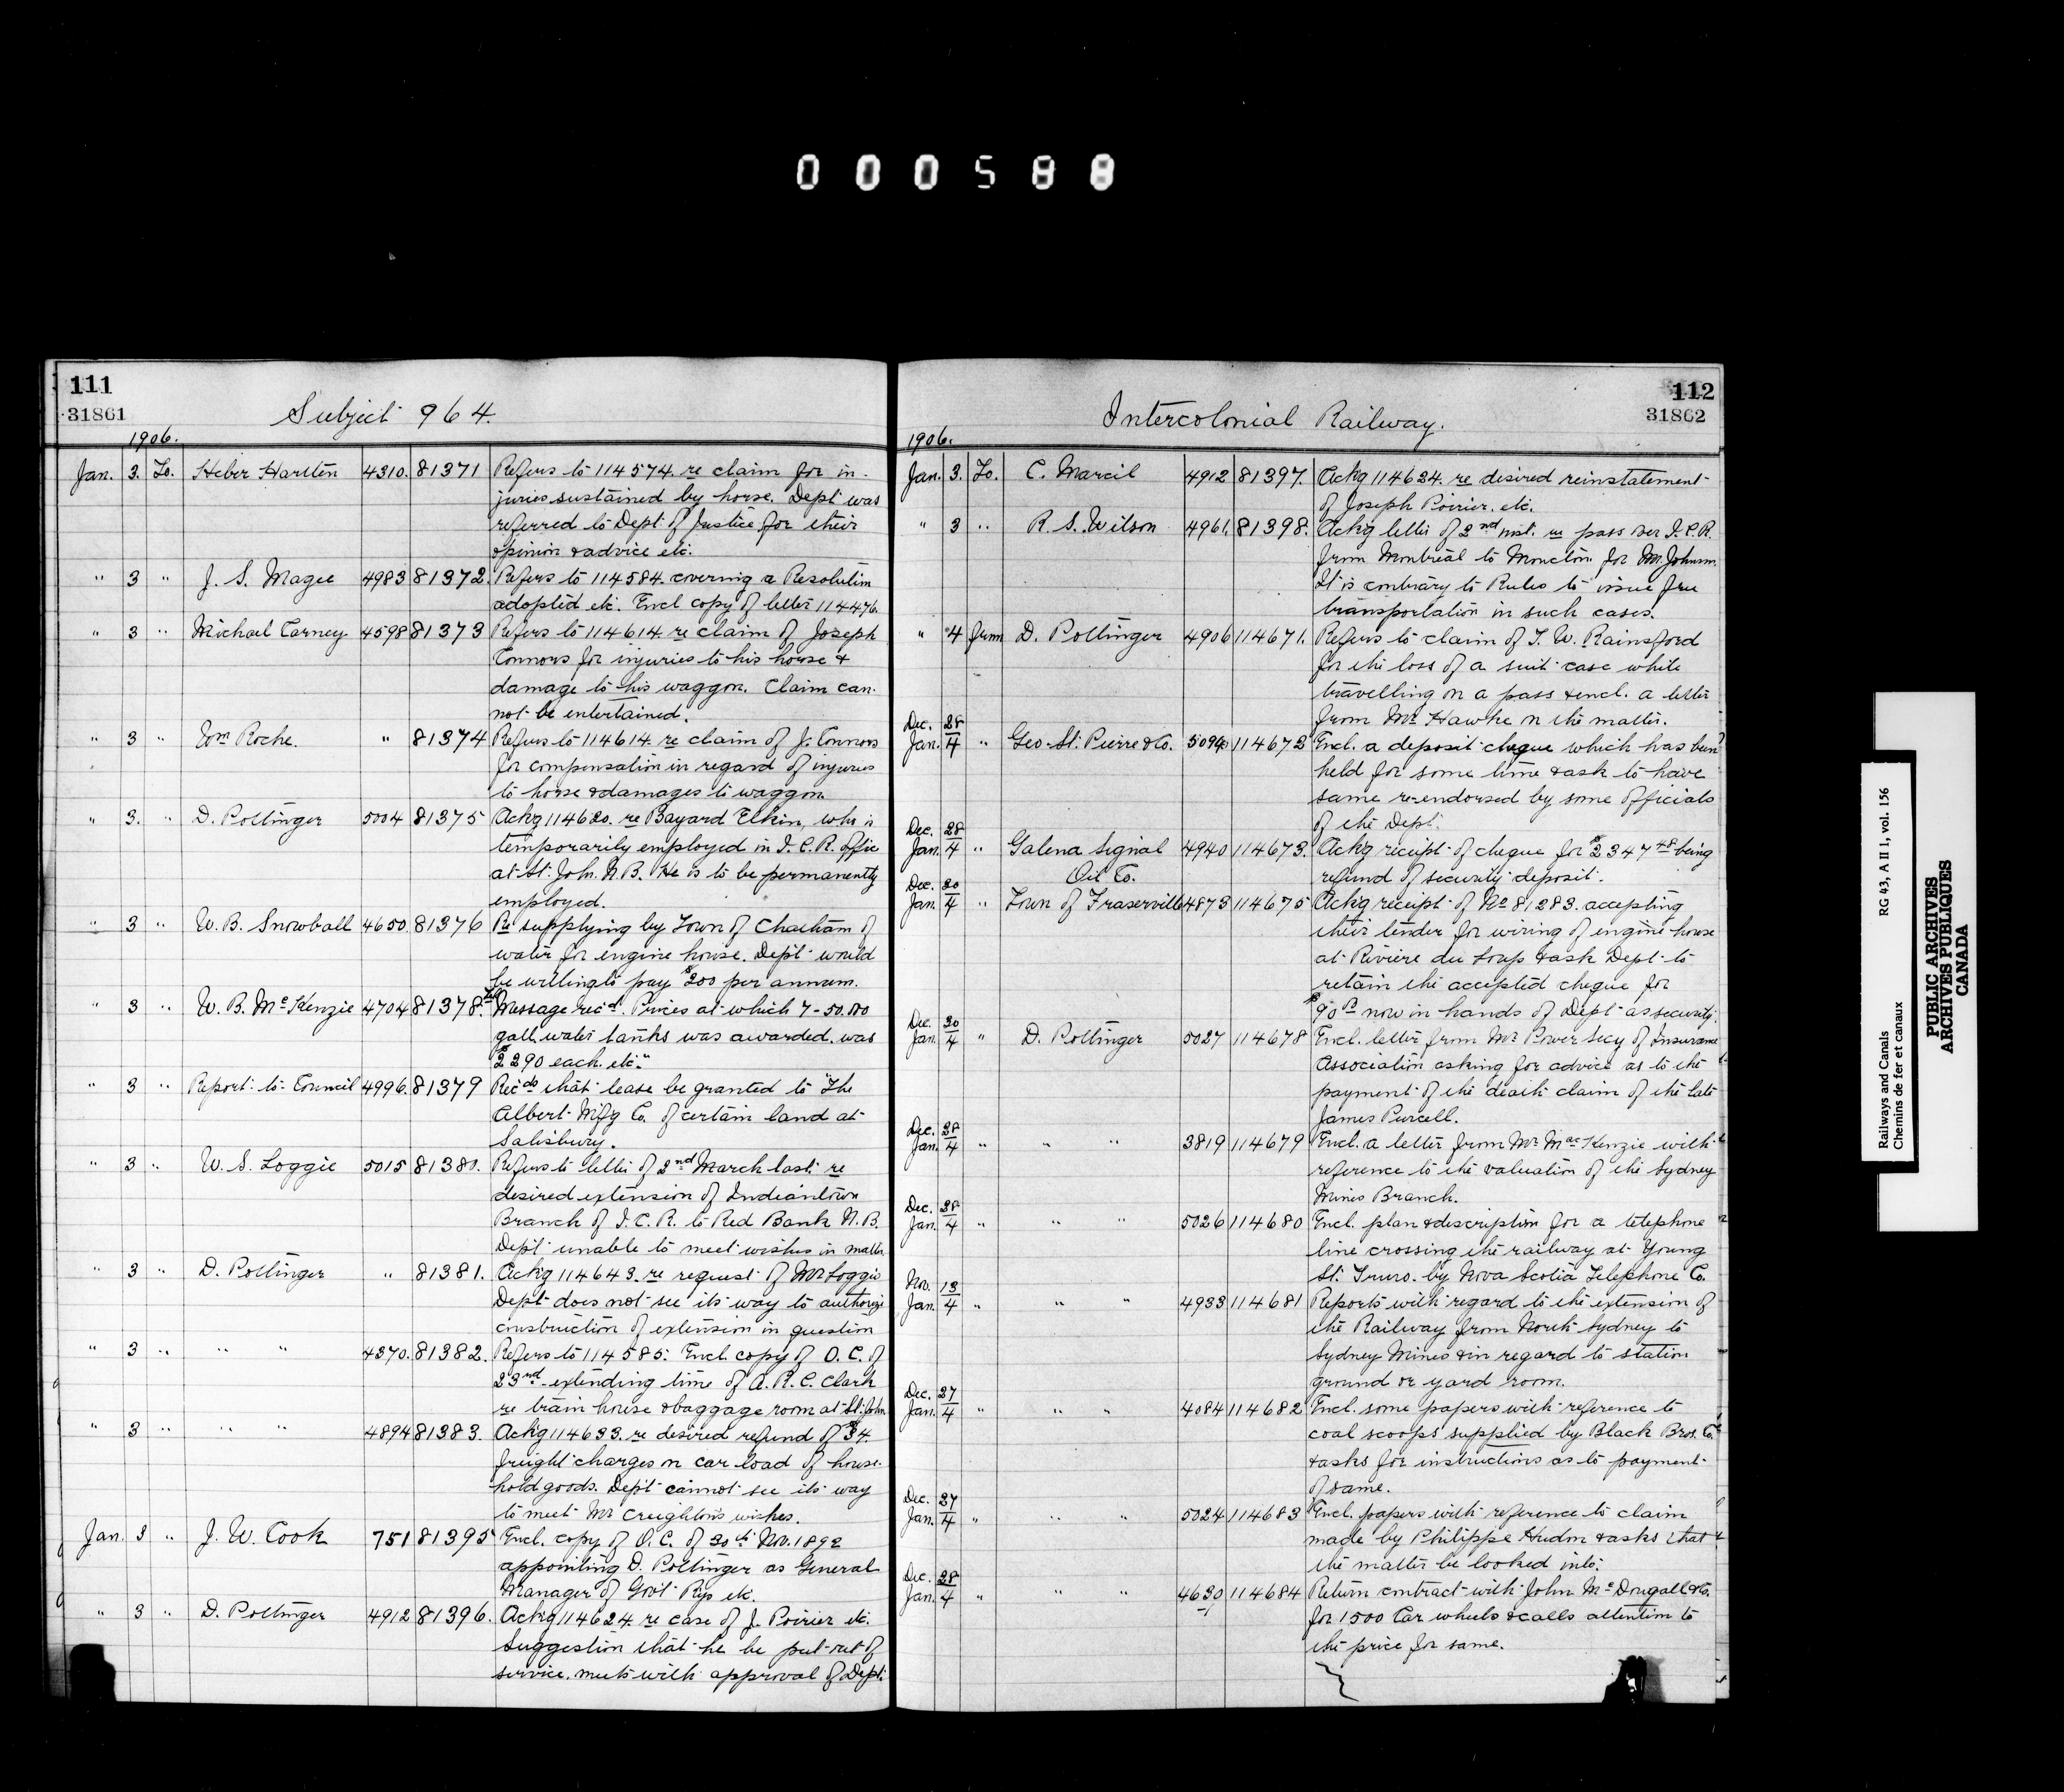 000588
111
31861
Subject 964.
1906.
Jan. 3. To. Heber Harsten 4310. 81371 Refers to 114574. re claim for in-
juries sustained by horse. Dept was
referred to Dept. of Justice for their
opinion & advice etc.
" 3 " J. S. Magee 4983 81372. Refers to 114584. covering a Resolution
adopted etc. Encl copy of letter 114476.
" 3 " Michael Carney 4598 81373 Refers to 114614 re claim of Joseph
Connors for injuries to his horse &
damage to his waggon. Claim can-
not be entertained.
" 3 " Wm Roche. " 81374 Refers to 114614. re claim of J. Connors
for compensation in regard of injuries
to horse & damages to waggon
" 3. " D. Pottinger 5004 81375 Ackg 114620. re Bayard Elkin, who is
temporarily employed in I.C.R. offic
at St. John. N.B. He is to be permanently
employed.
" 3 " W. B. Snowball 4650. 81376 Re supplying by Town of Chatham of
water for engine house. Dept would
be willing to pay $200 per annum.
" 3 " W. B. McKenzie 4704 81378. Message recd. Prices at which 7-50.000
gall. water tanks was awarded. was
$2290 each. etc."
" 3 " Report to Council 4996. 81379 Recds that lease be granted to "The
Albert Mfg Co. of certain land at
Salisbury.
" 3 " W. S. Loggie 5015 81380. Refers to letter of 2nd March last re
desired extension of Indiantown
Branch of I.C.R. to Red Bank N.B.
Dept unable to meet wishes in matter.
" 3 " D. Pottinger " 81381. Ackg 114643. re request of Mr Loggie
Dept does not see its way to authorize
construction of extension in question
" 3 " " " 4370. 81382. Refers to 114585. Encl. copy of O.C. of
23rd extending time of A. R. C. Clark
re train house & baggage room at St. John
" 3 " " " 4894 81383. Ackg 114633. re desired refund of $34.
freight charges on car load of house-
hold goods. Dept cannot see its way
to meet Mr Creighton's wishes.
Jan. 3 " J. W. Cook 751 81395 Encl. copy of O.C. of 30th Nov. 1892
appointing D. Pottinger as General
Manager of Govt Rys etc.
" 3 " D. Pottinger 4912 81396. Ackg 114624. re case of J. Poirier etc.
Suggestion that he be put out of
service. meets with approval of Dept.
112
31862
Intercolonial Railway.
1906.
Jan. 3. To. C. Marcil 4912 81397. Ackg 114624. re desired reinstatement
of Joseph Poirier. etc.
" 3 " R. S. Wilson 4961. 81398. Ackg letter of 2nd inst. re pass over I.C.R.
from Montreal to Moncton for Mr. Johnson.
It is contrary to Rules to issue free
transportation in such cases.
" 4 from D. Pottinger 4906 114671. Refers to claim of T. W. Rainsford
for the loss of a suit case while
travelling on a pass & encl. a letter
from Mr Hawke on the matter.
Dec. 28
Jan. 4 " Geo. St. Pierre & Co. 5094 114672 Encl. a deposit cheque which has been
held for some time & ask to have
same re-endorsed by some officials
of the Dept.
Dec. 28
Jan. 4 " Galena Signal 4940 114673. Ackg receipt of cheque for $2347 48 being
Oil Co. refund of security deposit.
Dec. 30
Jan. 4 " Town of Fraserville 4873 114675 Ackg receipt of No 81283. accepting
their tender for wiring of engine house
at Riviere du Loup & ask Dept to
retain the accepted cheque for
$90 now in hands of Dept as security.
Dec. 30
Jan. 4 " D. Pottinger 5027 114678 Encl. letter from Mr Power Secy of Insurance
Association asking for advice as to the
payment of the death claim of the late
James Purcell.
Dec. 28
Jan. 4 " " " 3819 114679 Encl. a letter from Mr MacKenzie with
reference to the valuation of the Sydney
Mines Branch.
Dec. 28
Jan. 4 " " " 5026 114680 Encl. plan & description for a telephone
line crossing the railway at Young
St. Truro. by Nova Scotia Telephone Co.
Nov. 13
Jan. 4 " " " 4933 114681 Reports with regard to the extension of
the Railway from North Sydney to
Sydney Mines & in regard to station
ground or yard room.
Dec. 27
Jan. 4 " " " 4084 114682 Encl. some papers with reference to
coal scoops supplied by Black Bros. Co.
& asks for instructions as to payment
of same.
Dec. 27
Jan. 4 " " " 5024 114683 Encl. papers with reference to claim
made by Philippe Hudon & asks that
the matter be looked into.
Dec. 28
Jan. 4 " " " 4630 114684 Return contract with John McDougall & Co.
for 1500 Car wheels & calls attention to
the price for same.
Railways and Canals RG 43, A II 1, vol. 156
Chemins de fer et canaux
PUBLIC ARCHIVES
ARCHIVES PUBLIQUES
CANADA